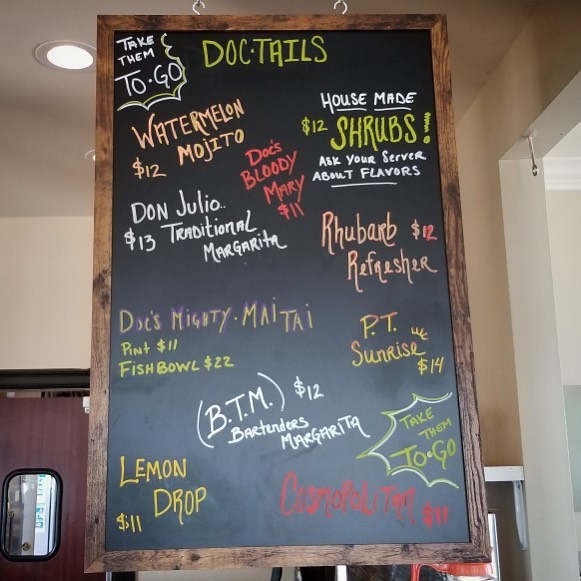 TAKE
THEM
TO·GO
DOC·TAILS
WATERMELON
MOJITO
$12
HOUSE MADE
$12 SHRUBS!
ASK YOUR SERVER
ABOUT FLAVORS
DOC'S
BLOODY
MARY
$11
DON JULIO..
$13 TRADITIONAL
MARGARITA
Rhubarb $12
Refresher
DOC'S MIGHTY·MAI TAI
PINT $11
FISHBOWL $22
P.T.
SUNRISE
$14
(B.T.M.) $12
BARTENDERS
MARGARITA
TAKE
THEM
TO·GO
LEMON
DROP
$11
COSMOPOLITAN $11